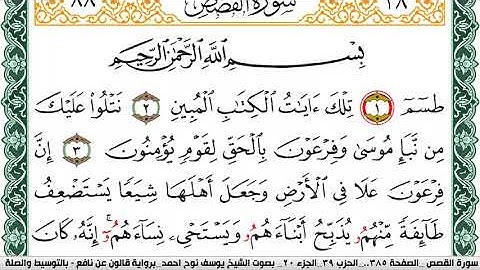 ٨٨ سُورَةُ القَصَصِ ٢٨
بِسْمِ اللَّهِ الرَّحْمَٰنِ الرَّحِيمِ
طسٓمٓ ١ تِلْكَ ءَايَٰتُ الْكِتَٰبِ الْمُبِينِ ٢ نَتْلُواْ عَلَيْكَ
مِن نَّبَإِ مُوسَىٰ وَفِرْعَوْنَ بِالْحَقِّ لِقَوْمٍ يُؤْمِنُونَ ٣ إِنَّ
فِرْعَوْنَ عَلَا فِي الْأَرْضِ وَجَعَلَ أَهْلَهَا شِيَعًا يَسْتَضْعِفُ
طَآئِفَةً مِّنْهُمُو يُذَبِّحُ أَبْنَآءَهُمُو وَيَسْتَحْيِۦ نِسَآءَهُمُوٓ إِنَّهُۥ كَانَ
سورة القصص .. الصفحة ٣٨٥... الحزب ٣٩ .الجزء ٢٠ .. بصوت الشيخ يوسف نوح احمد .برواية قالون عن نافع - بالتوسيط والصلة